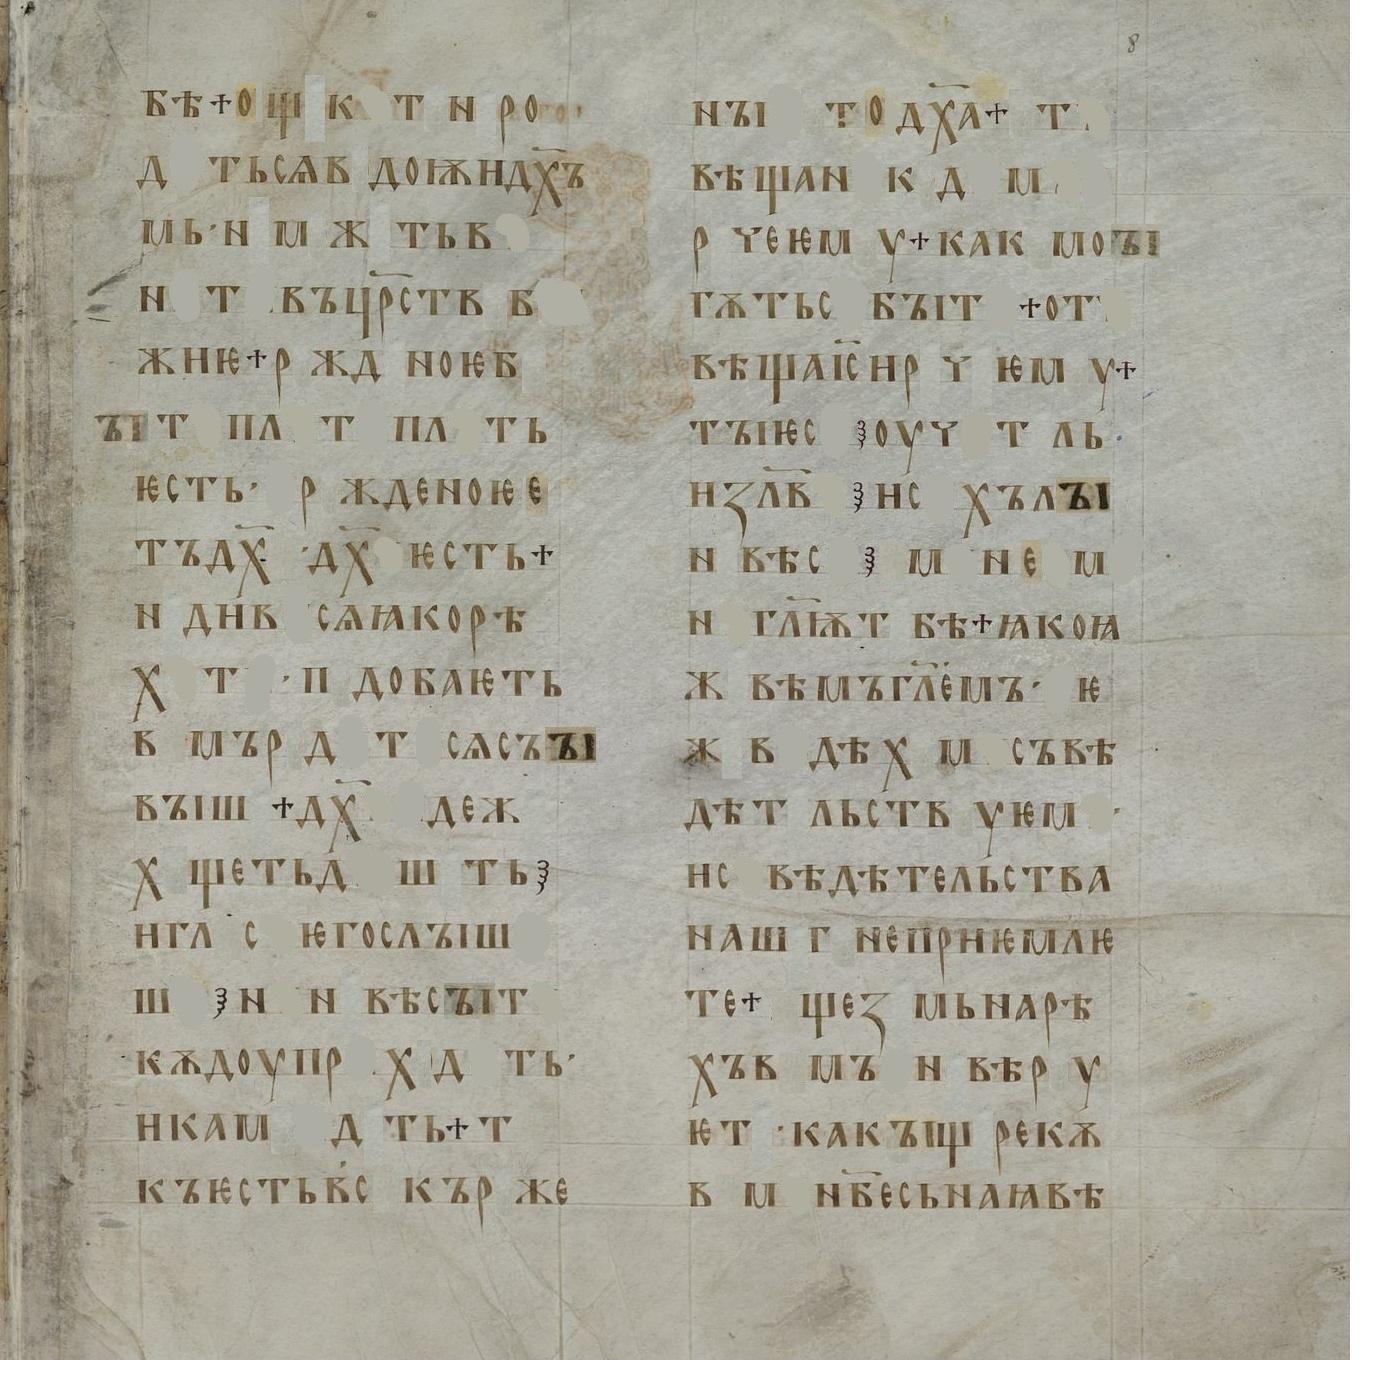 БѢ+О Щ К Т Н РО
Д ТЬСѦВ ДОѬНДХ҃Ъ
МЬ·Н М Ж ТЬВ
Н Т ВЪЦР҃СТВ Б
ЖНѤ+Р ЖД НОѤБ
ЪІТ ПЛ Т ПЛ ТЬ
ѤСТЬ· Р ЖДЕНОѤЕ
ТЪДХ҃ ·ДХ҃ ѤСТЬ+
Н ДНВ СѦꙖКОРѢ
Х Т ·П ДОБАѤТЬ
В МЪР Д Т СѦСЪЪІ
ВЪІШ +ДХ҃ ДЕЖ
Х ЩЕТЬД Ш ТЬ
НГЛ С ѤГОСЛЪІШ
Ш Н Н ВѢСЪІТ
КѪДОУПР Х Д ТЬ·
НКАМ Д ТЬ+Т
КЪѤСТЬВ҃С КЪР ЖЕ
НЪІ Т О ДХ҃А+ Т
ВѢЩАН К Д М
Р ҮЕѤМ У+КАК МОЪІ
ГѪТЬС БЪІТ +ОТ
ВѢЩАІ҃СНР Ү ѤМ У+
ТЪІѤС ОУҮ Т ЛЬ·
НЗЛ҃В НС ХЪЛЪІ
Н ВѢС М НЕ М
Н ГЛ҃ѬТ БѢ+ꙖКОꙖ
Ж ВѢМЪГЛ҃ЕМЪ· Ѥ
Ж В ДѢ Х М СЪВѢ
ДѢТ ЛЬСТВ УѤМ ·
НС ВѢДѢТЕЛЬСТВА
НАШ Г НЕПРНѤМЛѤ
ТЕ+ ЩЕЗ МЬНАРѢ
ХЪВ МЪ Н ВѢР У
ѤТ ·КАКЪІЩ РЕКѪ
В М НБ҃ЕСЬНАꙖВѢ
8